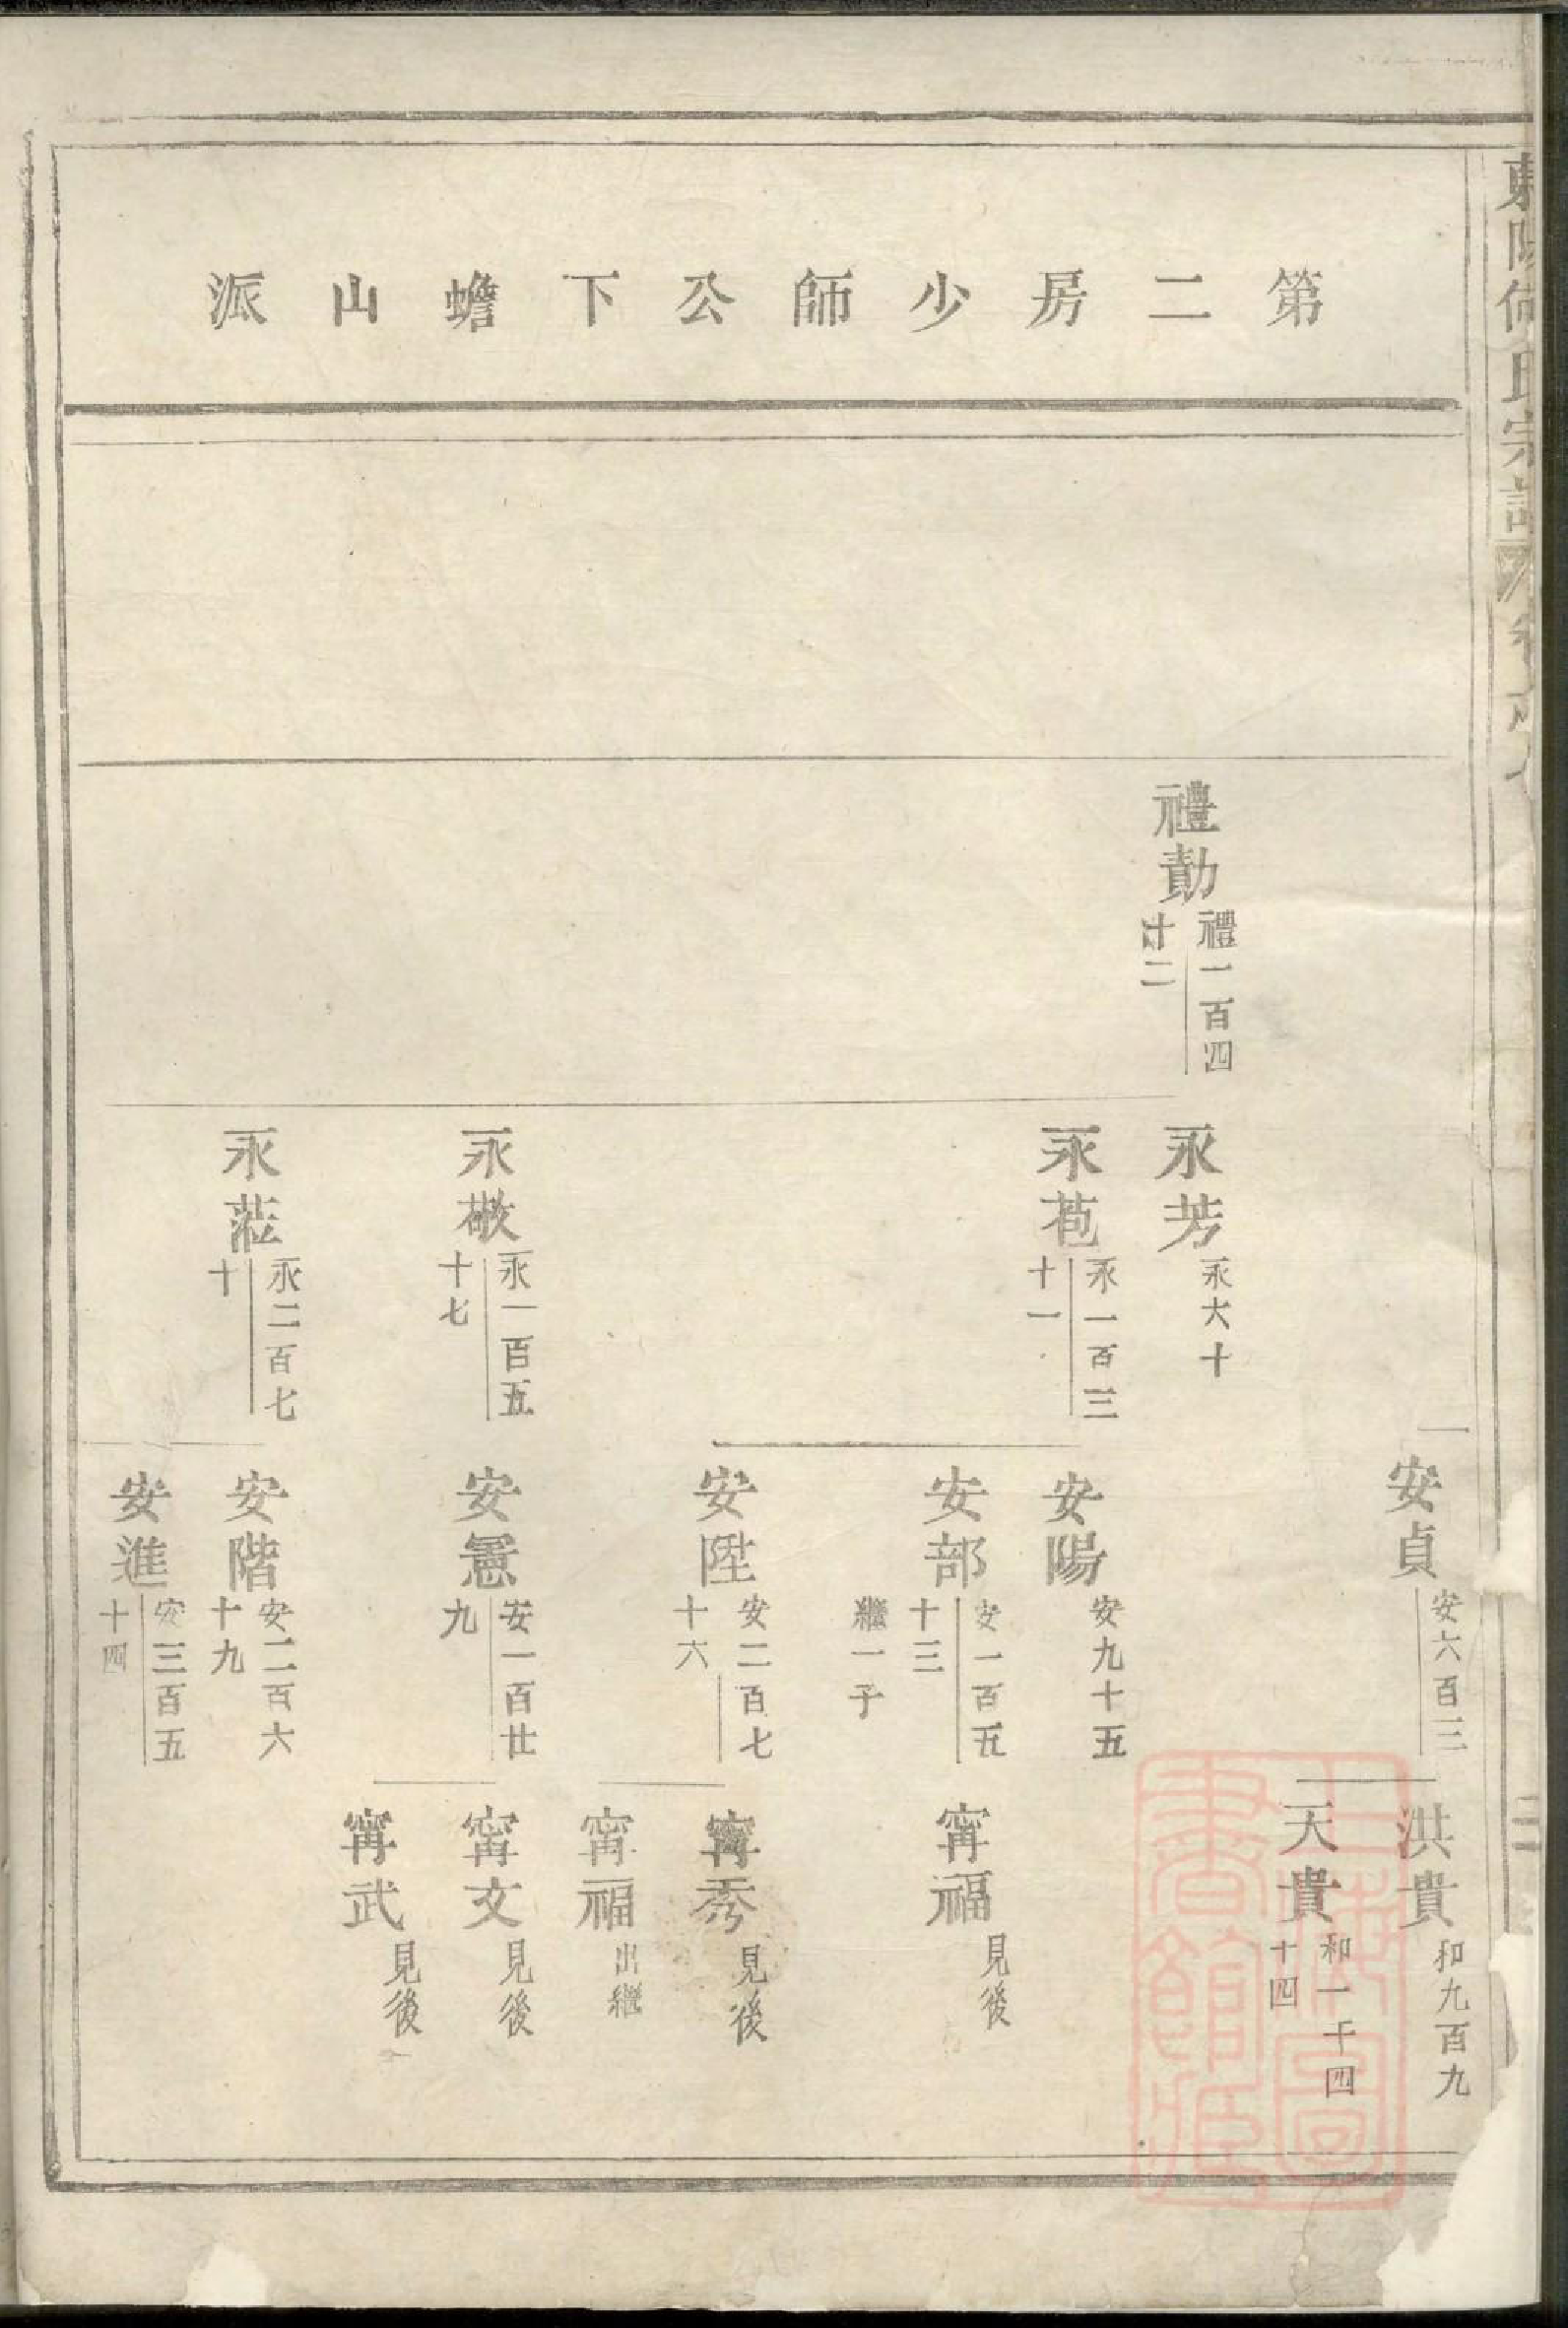 東陽何氏宗譜
第二房少師公下蟾山派
禮勣
禮一百四
十二
永芳
永六十
永苞
永一百三
十一
永敬
永一百五
十七
永蒞
永二百七
十
安貞
安六百三
安陽
安九十五
安部
安一百五
十三
繼一子
安陞
安二百七
十六
安憲
安一百廿
九
安階
安二百六
十九
安進
安三百五
十四
洪貴
和九百九
天貴
和一千四
十四
甯福
見後
甯秀
見後
甯福
出繼
甯文
見後
甯武
見後
上海圖
書館藏